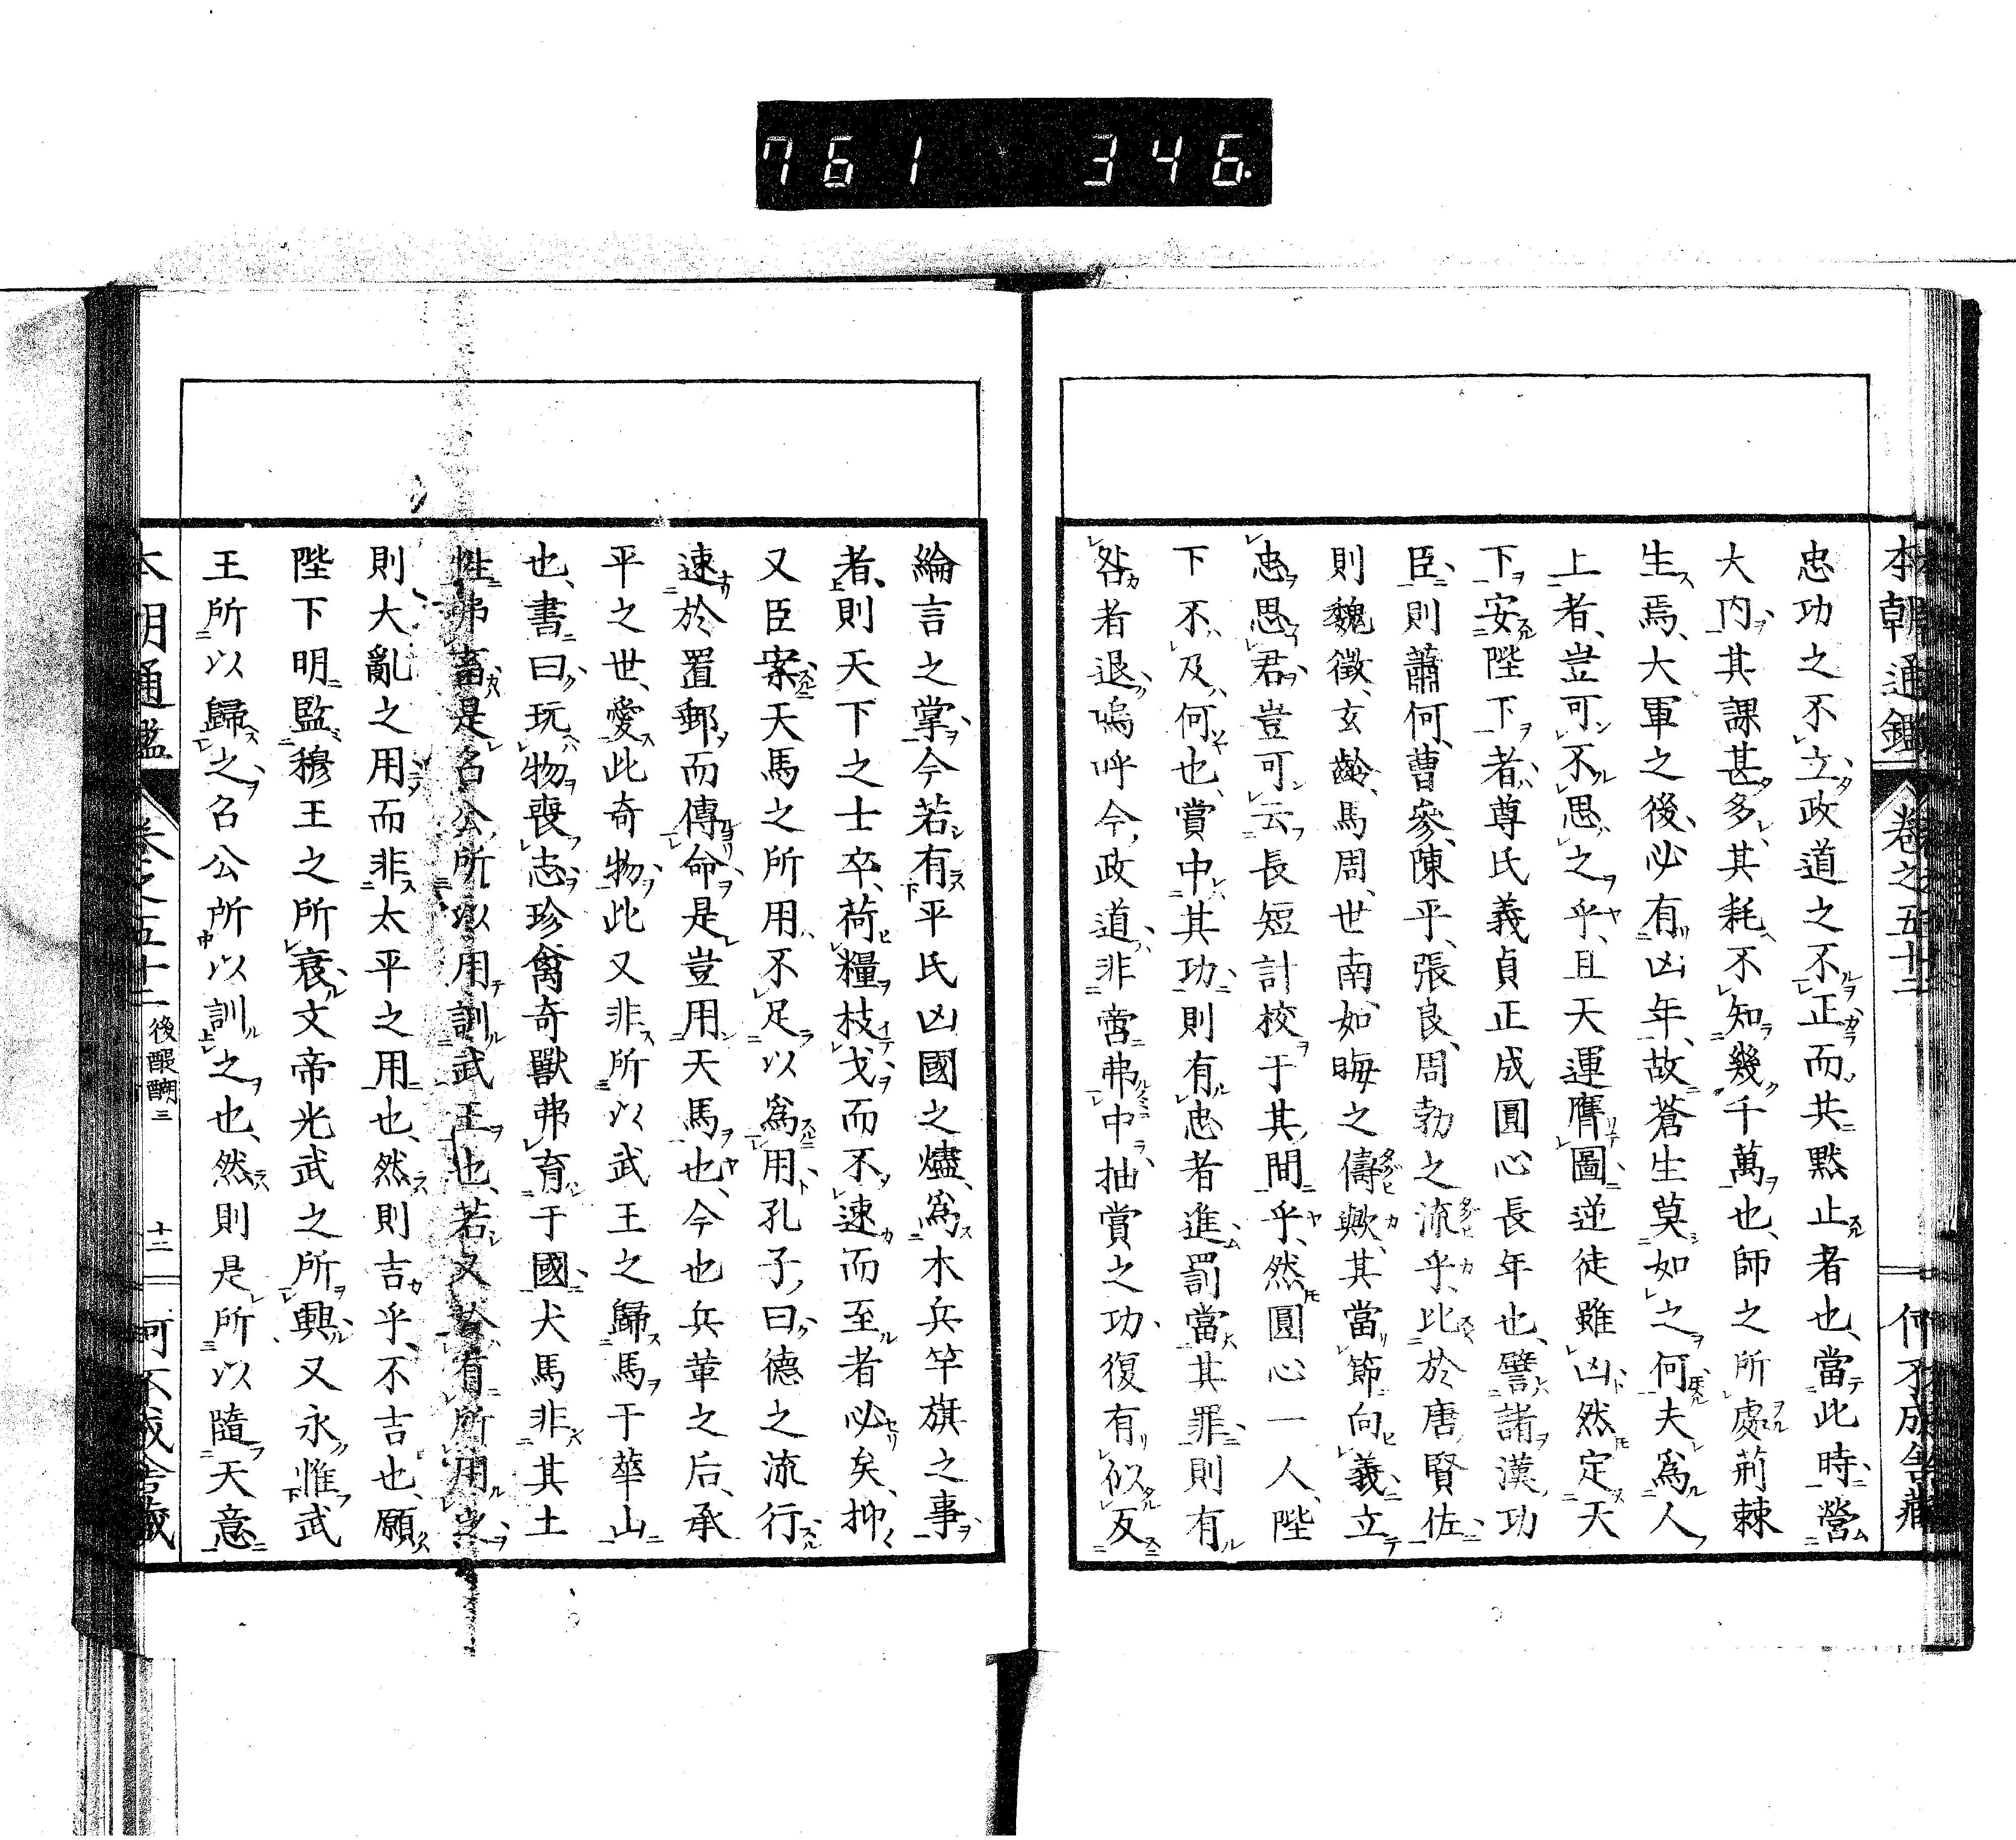 761 346
本朝通鑑 卷之五十二 何不成舍藏
忠功之不立政道之不正而共黙止者也、當此時、營
大内、其課甚多、其耗不知幾千萬也、師之所處荊棘
生焉、大軍之後、必有凶年、故蒼生莫如之何、夫爲人
上者、豈可不思之乎、且天運膺圖、逆徒雖凶、然定天
下安陛下者、尊氏義貞正成圓心長年也、譬諸漢功
臣、則蕭何、曹參、陳平、張良、周勃之流乎、比於唐賢佐、
則魏徵、玄齡、馬周、世南、如晦之儔歟、其當節向義立
忠思君、豈可云長短計校于其間乎、然圓心一人、陛
下不及、何也、賞中其功、則有忠者進、罰當其罪、則有
咎者退、嗚呼今政道、非啻弗中抽賞之功、復有似反
綸言之掌、今若有平氏凶國之燼、爲木兵竿旗之事
者、則天下之士卒、荷糧枝戈而不速而至者必矣、抑
又臣案天馬之所用、不足以爲用、孔子曰、德之流行、
速於置郵而傳命、是豈用天馬也、今也兵革之后、承
平之世、愛此奇物、此又非所以武王之歸馬于華山
也、書曰、玩物喪志、珍禽奇獸弗育于國、犬馬非其土
性弗畜、是召公所以用訓武王也、若又於有所用之、
則大亂之用、而非太平之用也、然則吉乎、不吉也、願
陛下明監穆王之所衰、文帝光武之所興、又永惟武
王所以歸之、召公所以訓之也、然則是所以隨天意
本朝通鑑 卷之五十二 後醍醐三 十二 何不成舍藏